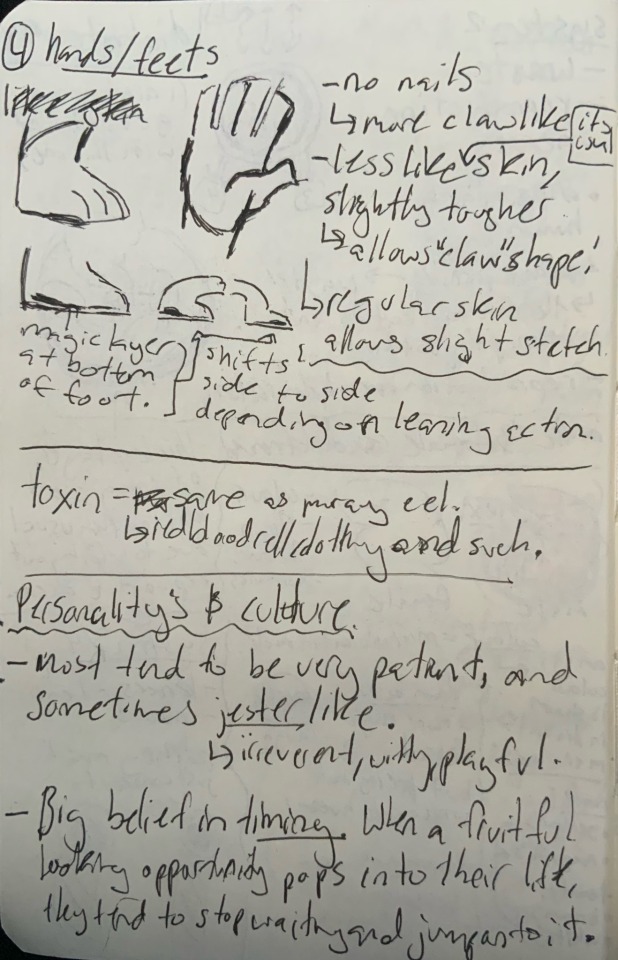 ④ hands/feets
-no nails
↳more clawlike
-less like skin,
its
usual
slightly tougher.
↳allows "claw" shape!
↳regular skin
allows slight stretch.
magic layer
at bottom
of foot.
shifts
side to side
depending on leaning action.
toxin = same as muray eel.
↳red blood cell clotting and such.
Personality's & culture.
-most tend to be very patient, and
sometimes jester like.
↳irreverent, witty, playful.
- Big belief in timing. When a fruitful
looking opportunity pops into their life,
they tend to stop waiting and jump onto it.